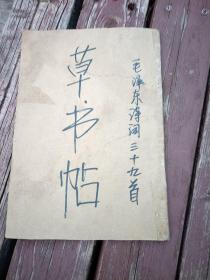 毛泽东诗词三十九首
草书帖